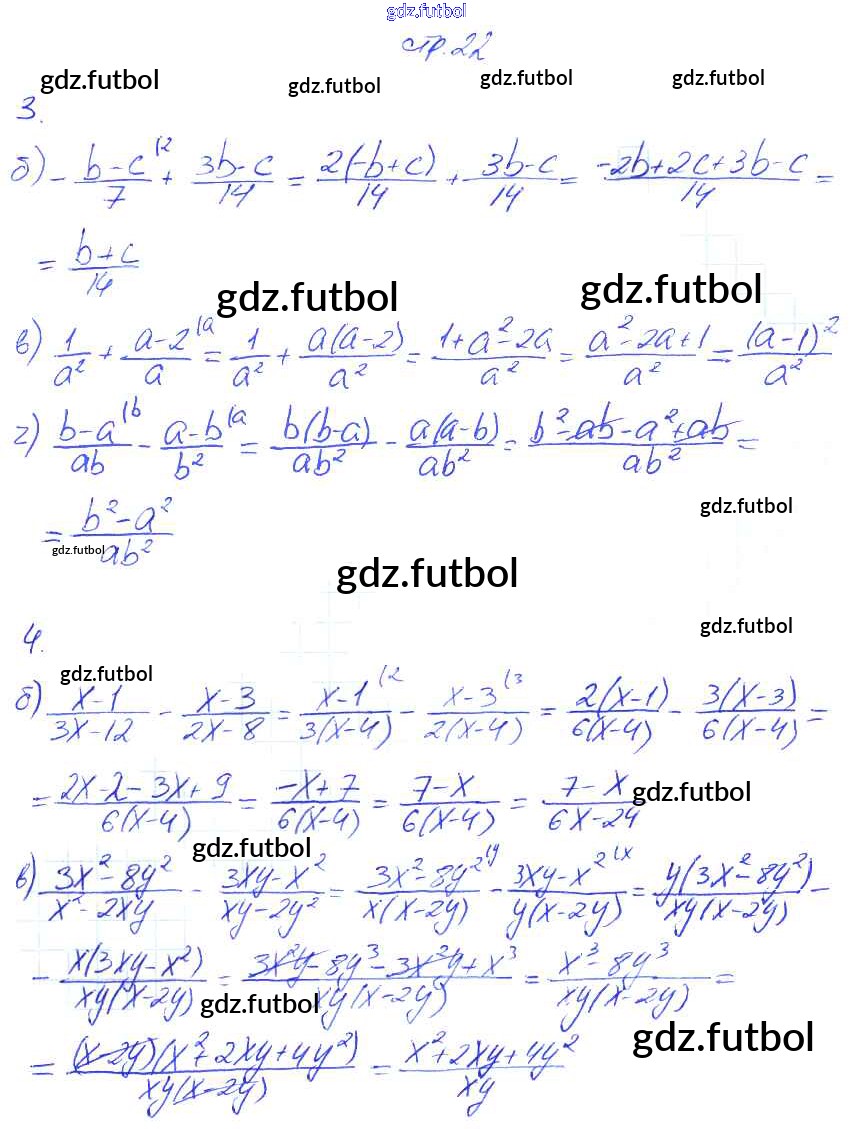 gdz.futbol
стр.22
gdz.futbol gdz.futbol gdz.futbol gdz.futbol
3.
б) - (b-c)/7 (2 + (3b-c)/14 = 2(-b+c)/14 + (3b-c)/14 = (-2b+2c+3b-c)/14 =
= (b+c)/14
gdz.futbol gdz.futbol
в) 1/a² + (a-2)/a (a = 1/a² + a(a-2)/a² = (1+a²-2a)/a² = (a²-2a+1)/a² = (a-1)²/a²
г) (b-a)/ab (b - (a-b)/b² (a = b(b-a)/ab² - a(a-b)/ab² = (b²-ab-a²+ab)/ab² =
gdz.futbol
= (b²-a²)/ab²
gdz.futbol
gdz.futbol
4.
gdz.futbol
gdz.futbol
б) (x-1)/(3x-12) - (x-3)/(2x-8) = (x-1)/3(x-4) (2 - (x-3)/2(x-4) (3 = 2(x-1)/6(x-4) - 3(x-3)/6(x-4) =
= (2x-2-3x+9)/6(x-4) = (-x+7)/6(x-4) = (7-x)/6(x-4) = (7-x)/(6x-24)
gdz.futbol
gdz.futbol
в) (3x²-8y²)/(x²-2xy) - (3xy-x²)/(xy-2y²) = (3x²-8y²)/x(x-2y) (y - (3xy-x²)/y(x-2y) (x = y(3x²-8y²)/xy(x-2y) -
- x(3xy-x²)/xy(x-2y) = (3x²y-8y³-3x²y+x³)/xy(x-2y) = (x³-8y³)/xy(x-2y) =
gdz.futbol
gdz.futbol
= (x-2y)(x²+2xy+4y²)/xy(x-2y) = (x²+2xy+4y²)/xy